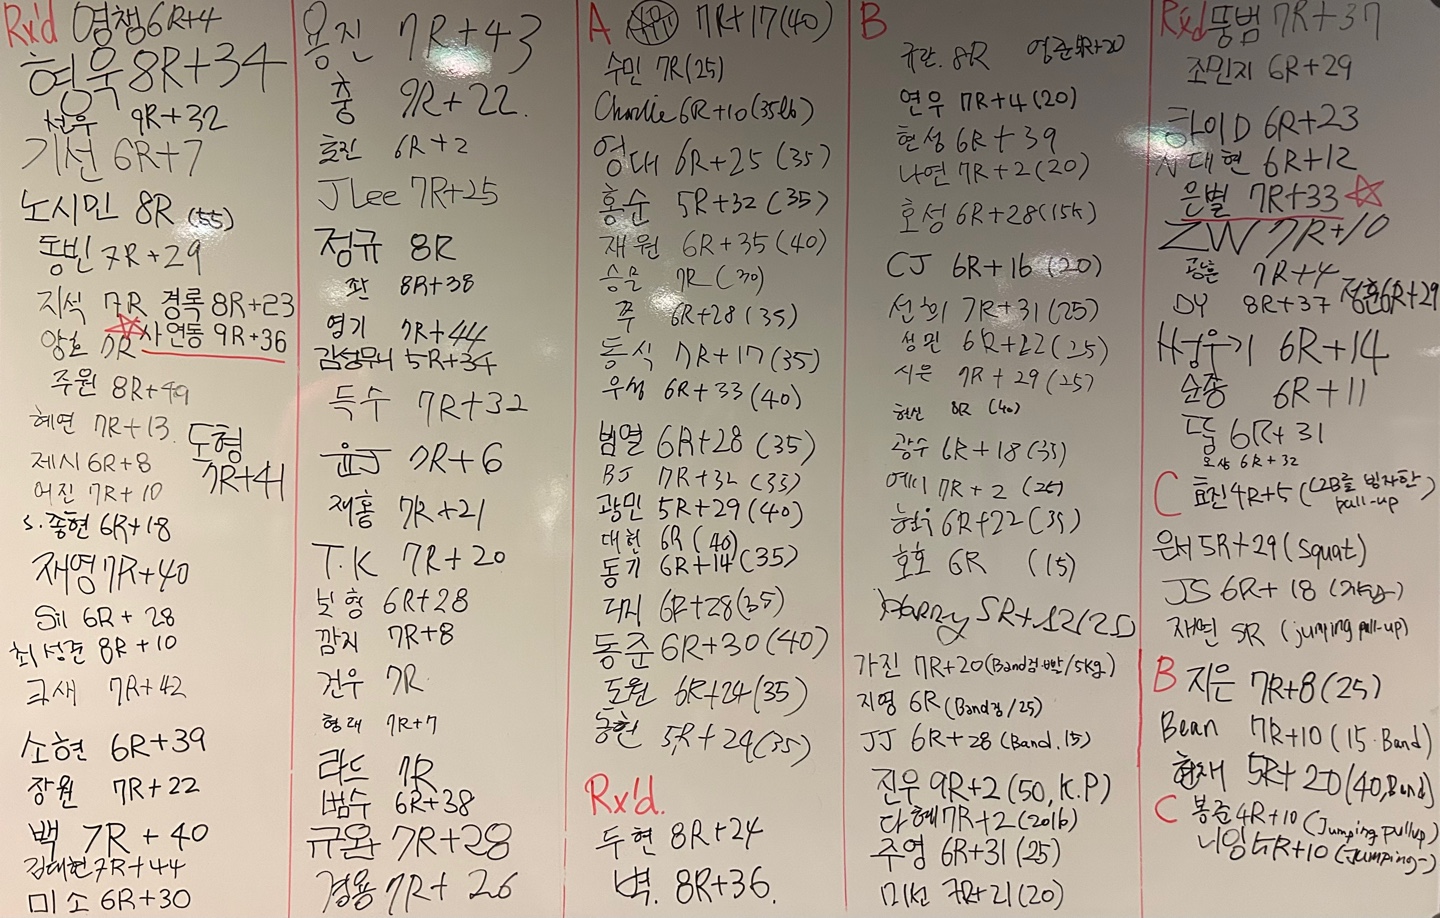 Rx'd 영챙 6R+4
형욱 8R+34
선우 9R+32
기선 6R+7
노시민 8R (55)
동빈 7R+29
지석 7R 경록 8R+23
양호 7R 사연동 9R+36
주원 8R+49
혜연 7R+13
도형 7R+41
제시 6R+8
어진 7R+10
S.종현 6R+18
재영 7R+40
Sil 6R+28
최성견 8R+10
7R+42
소현 6R+39
장원 7R+22
백 7R+40
김대현 7R+44
미소 6R+30
용진 7R+43
충 9R+22.
효진 6R+2
J Lee 7R+25
정규 8R
좌 8R+38
영기 7R+44
5R+34
득수 7R+32
윤J 7R+6
재홍 7R+21
T.K 7R+20
6R+28
깜지 7R+8
건우 7R
형래 7R+7
라드 7R
범수 6R+38
규완 7R+28
경용 7R+26
A 7R+17(40)
수민 7R(25)
Charlie 6R+10(35lb)
영대 6R+25(35)
홍순 5R+32(35)
재원 6R+35(40)
승모 7R(30)
쭈 6R+28(35)
동식 7R+17(35)
우성 6R+33(40)
범열 6R+28(35)
BJ 7R+32(35)
광민 5R+29(40)
대현 6R(40)
동기 6R+14(35)
디지 6R+28(35)
동준 6R+30(40)
도원 6R+24(35)
5R+24(35)
Rx'd.
두현 8R+24
벽. 8R+36.
B
규란. 8R 영준 4R+20
연우 7R+4(20)
현성 6R+39
나연 7R+2(20)
호성 6R+28(15k)
CJ 6R+16(20)
선희 7R+31(25)
성민 6R+22(25)
시은 7R+29(25)
현신 8R (40)
광수 6R+18(35)
에디 7R+2 (25)
현우 6R+22(35)
호호 6R (15)
Harry 5R+12(25)
가진 7R+20(Band/5kg)
지영 6R(Band/25)
JJ 6R+28(Band.15)
진우 9R+2(50,K.P)
다혜 7R+2(20lb)
주영 6R+31(25)
미선 7R+21(20)
Rx'd 뚱범 7R+37
조민지 6R+29
하이D 6R+23
서대현 6R+12
은별 7R+33
ZW 7R+10
광훈 7R+4
DY 8R+37 정훈 6R+29
6R+14
순종 6R+11
뚜 6R+31
6R+32
C 효진 4R+5 (pull-up)
은서 5R+29 (squat)
JS 6R+18
재연 5R (jumping pull-up)
B 지은 7R+8(25)
Bean 7R+10(15.Band)
현재 5R+20(40,Band)
C 봉준 4R+10(Jumping pullup)
니임 5R+10(Jumping~)